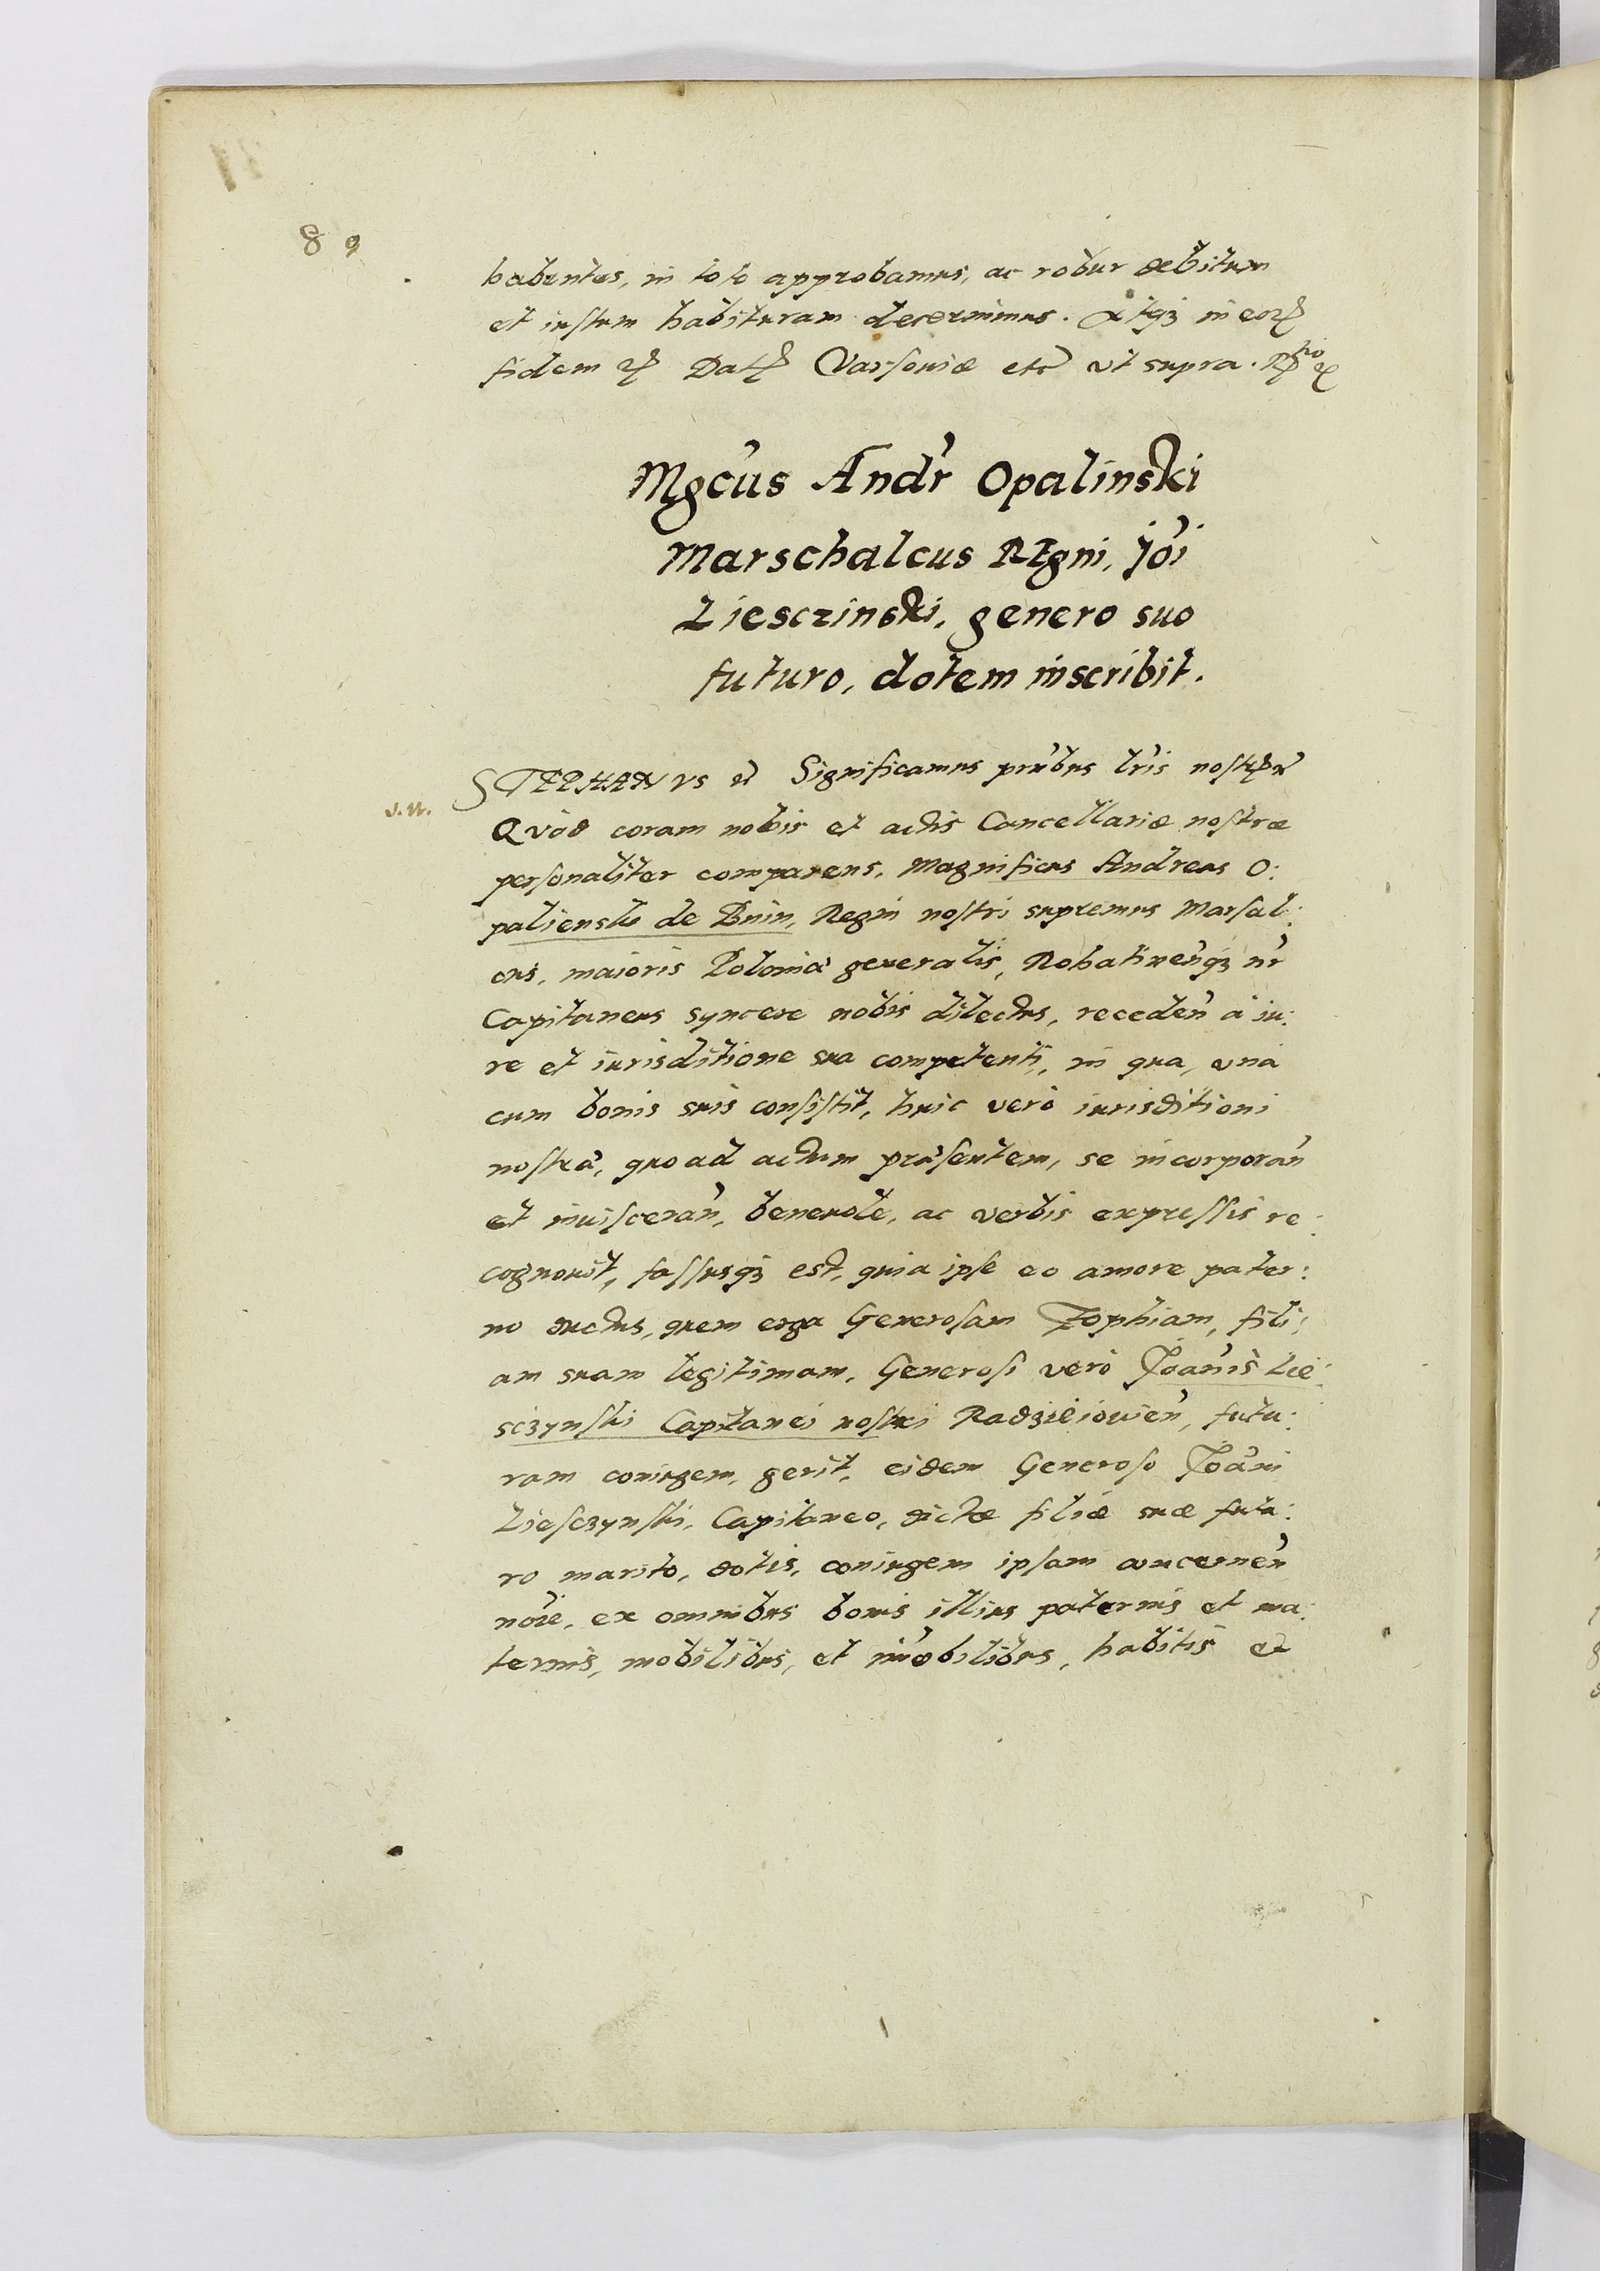 89
habentes, in toto approbamus, ac robur debitum
et iustum habituram decernimus. In cuius
fidem Dat Varsoviæ etc ut supra.
Mgcus Andr Opalinski
Marschalcus Regni, Joi
Liesczinski, genero suo
futuro, dotem inscribit.
STEPHANVS et Significamus pntibus lris nostris
Quod coram nobis et actis Cancellariæ nostræ
personaliter comparens, Magnificus Andreas O:
palienski de Bnin, Regni nostri supremus Marsal:
cus, maioris Poloniæ generalis, Rohatinenq3 nr
Capitaneus syncere nobis dilectus, receden à iu:
re et iurisditione sua competenti, in qua, unà
cum bonis suis consistit, huic verò iurisditioni
nostræ, quo ad actum præsentem, se incorporan
et inuisceran, beneuole, ac verbis expressis re:
cognouit, fassusq3 est, quia ipse eo amore pater:
no ductus, quem erga Generosam Zophiam, fili:
am suam legitimam, Generosi verò Joannis Lie:
sczynski Capitanei nostri Radzieiouien, futu:
ram coniugem, gerit, eidem Generoso Joanni
Liesczynski, Capitaneo, dictæ filiæ suæ futu:
ro marito, dotis, coniugem ipsam concernen
noie, ex omnibus bonis illius paternis et ma:
ternis, mobilibus, et imobilibus, habitis et